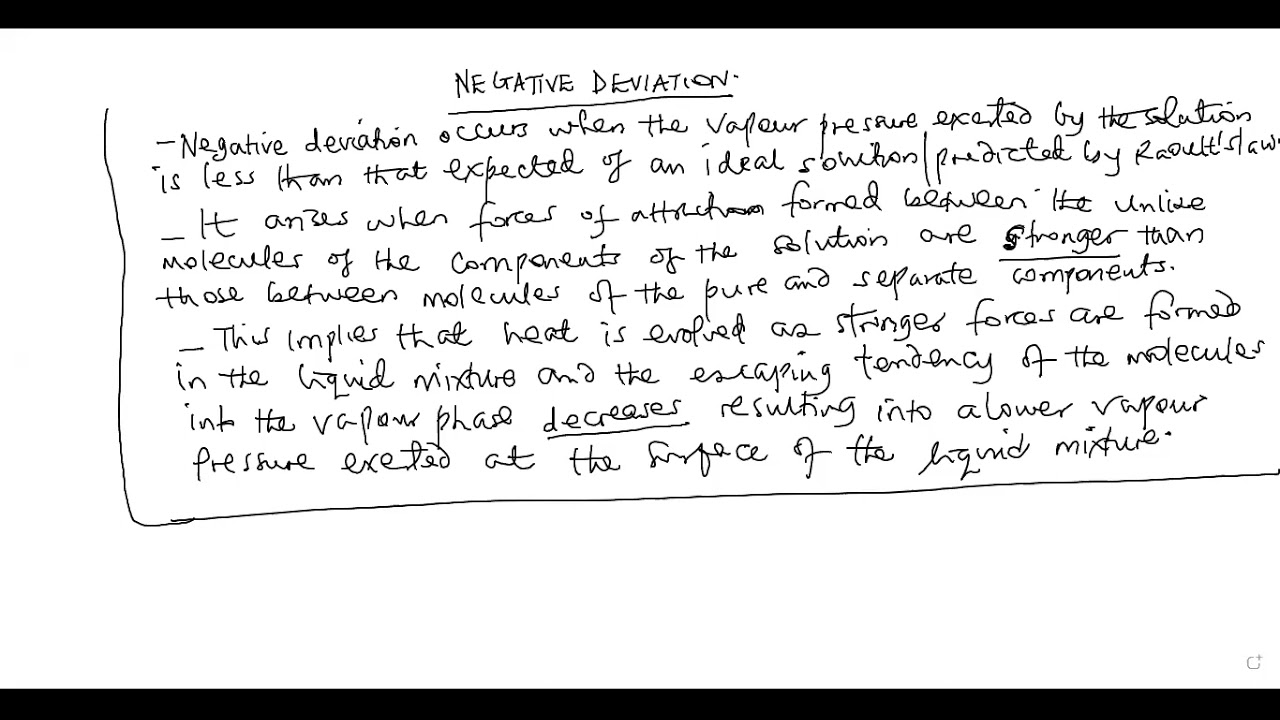 NEGATIVE DEVIATION.
- Negative deviation occurs when the vapour pressure exerted by the solution
is less than that expected of an ideal solution/predicted by Raoult's law.
- It arises when forces of attraction formed between the unlike
molecules of the components of the solution are stronger than
those between molecules of the pure and separate components.
- This implies that heat is evolved as stronger forces are formed
in the liquid mixture and the escaping tendency of the molecules
into the vapour phase decreases resulting into a lower vapour
pressure exerted at the surface of the liquid mixture.